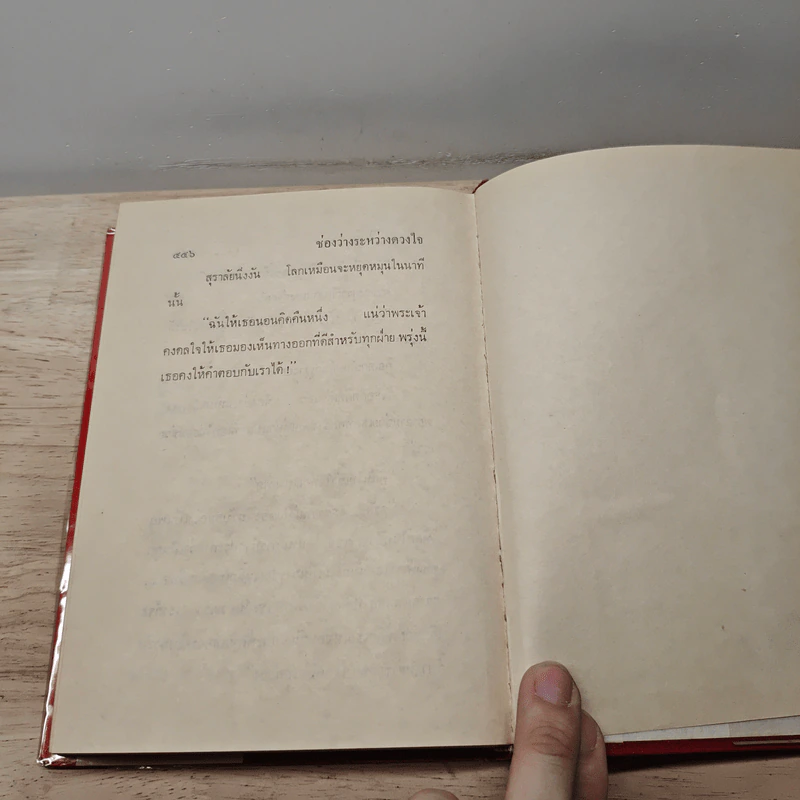 ๕๕๖ ช่องว่างระหว่างดวงใจ
สุราลัยนิ่งงัน โลกเหมือนจะหยุดหมุนในนาที
นั้น
“ฉันให้เธอนอนคิดคืนหนึ่ง แน่ว่าพระเจ้า
คงดลใจให้เธอมองเห็นทางออกที่ดีสำหรับทุกฝ่าย พรุ่งนี้
เธอคงให้คำตอบกับเราได้ !”